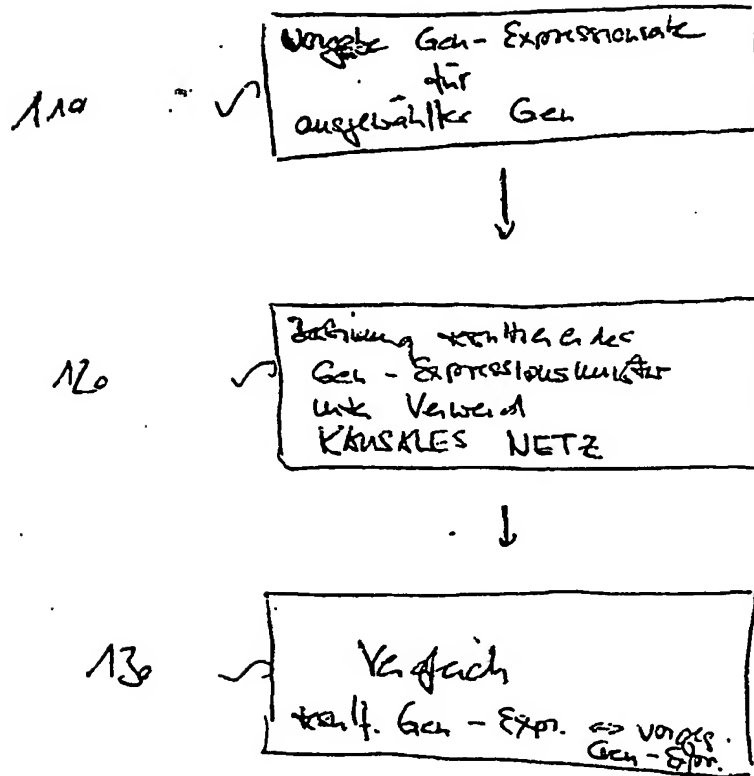 110
Vorgabe Gen-Expressionsrate
für
ausgewähltes Gen
120
Bestimmung resultierendes
Gen-Expressionsmuster
unter Verwend
KAUSALES NETZ
130
Vergleich
result. Gen-Expr. <=> vorgeg.
Gen-Expr.